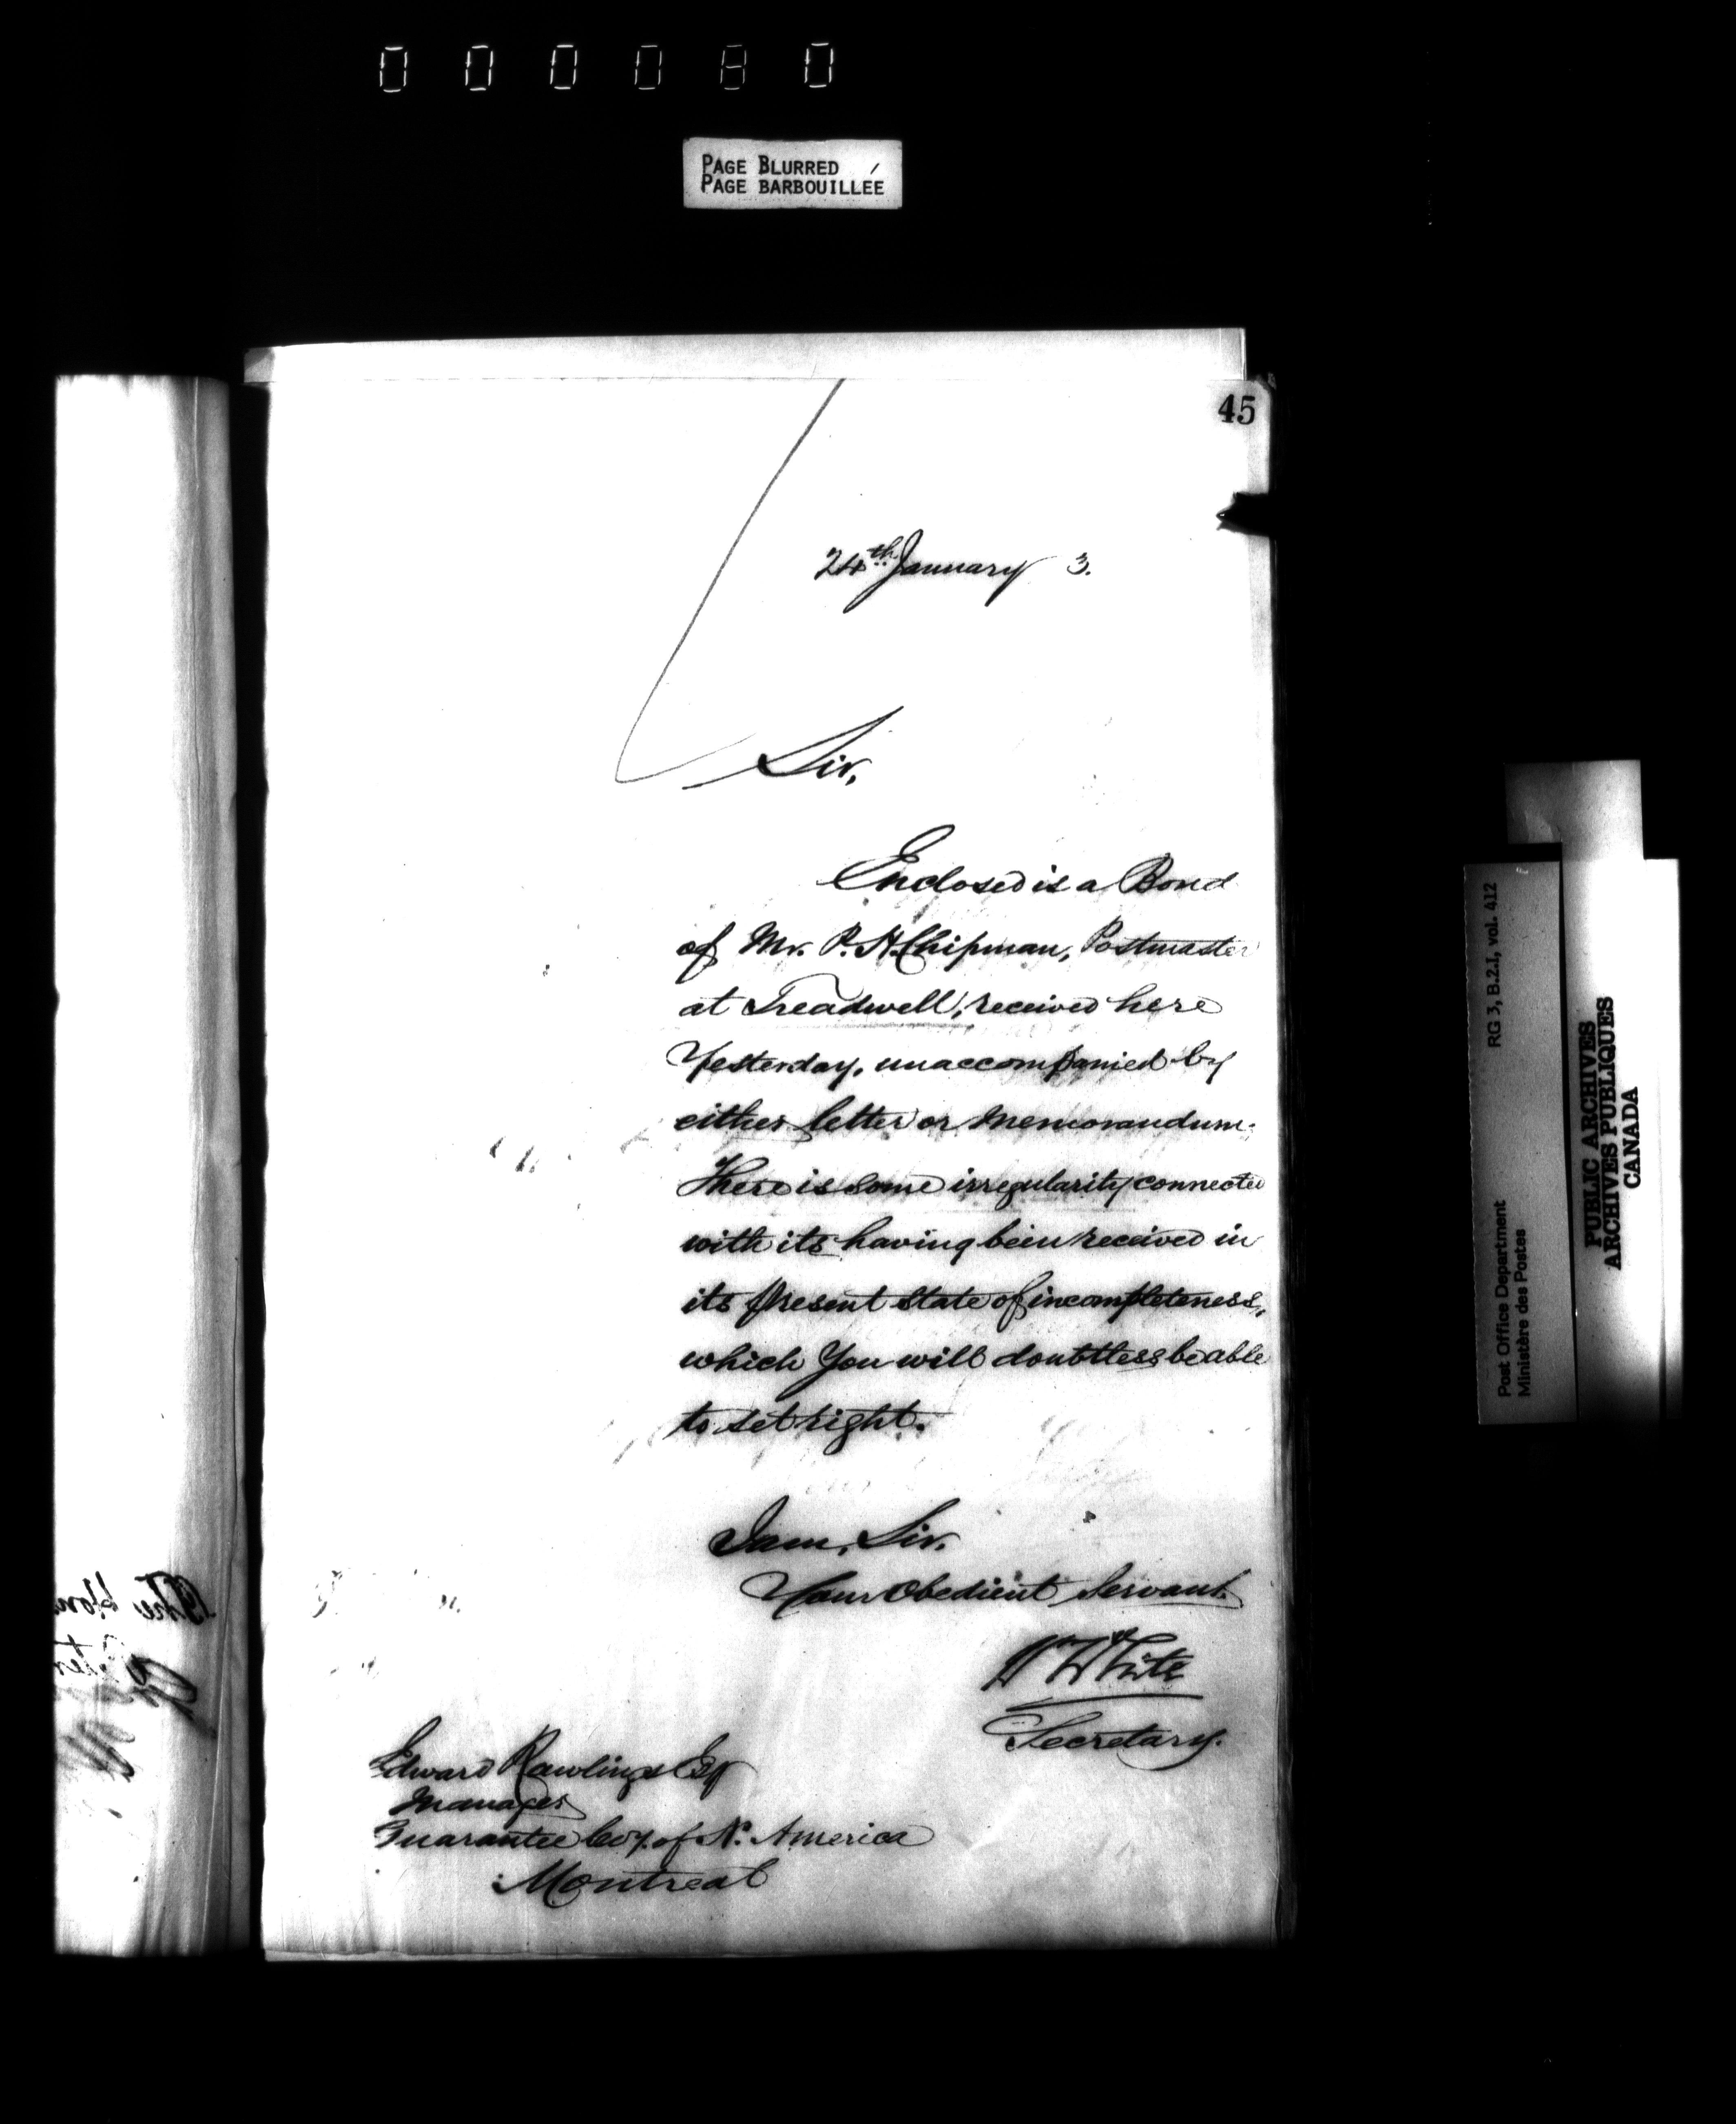 000080
PAGE BLURRED
PAGE BARBOUILLÉE
45
24th January 3.
Sir,
Enclosed is a Bond
of Mr. P. H. Chipman, Postmaster
at Treadwell, received here
Yesterday, unaccompanied by
either letter or Memorandum.
There is some irregularity connected
with its having been received in
its present state of incompleteness,
which You will doubtless be able
to set right.
I am, Sir,
Your Obedient Servant
W White
Secretary.
Edward Rawlings Esq
Manager
Guarantee Coy. of N. America
Montreal
RG 3, B.2.I, vol. 412
Post Office Department
Ministère des Postes
PUBLIC ARCHIVES
ARCHIVES PUBLIQUES
CANADA